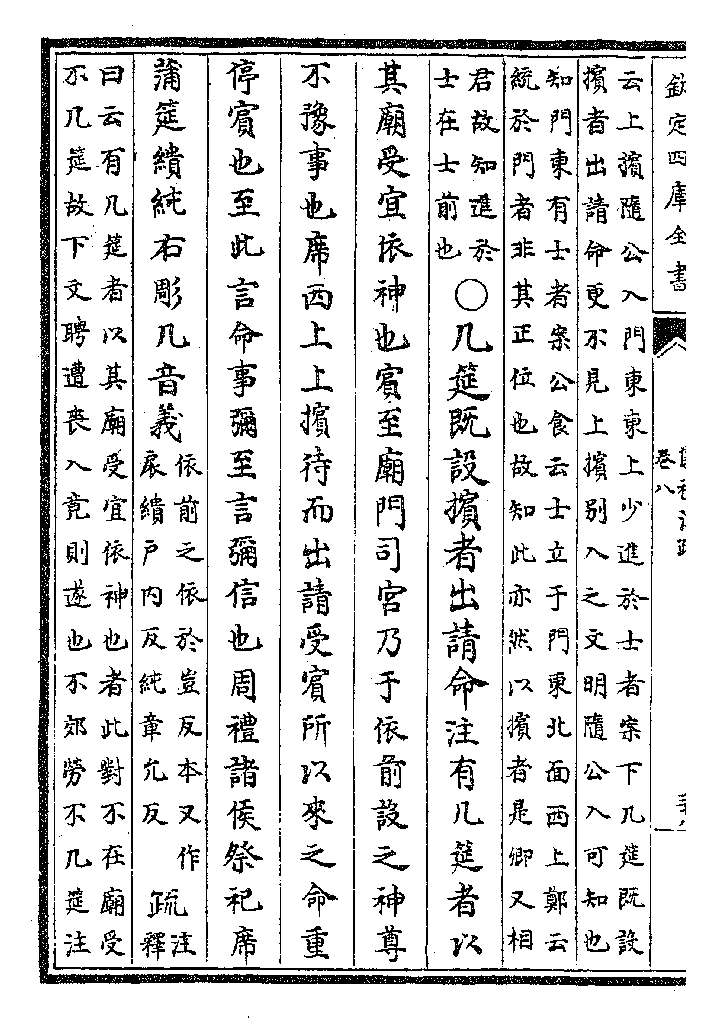 欽定四庫全書
卷八
云上擯隨公入門東東上少進於士者案下几筵既設
擯者出請命更不見上擯别入之文明隨公入可知也
知門東有士者案公食云士立于門東北面西上鄭云
統於門者非其正位也故知此亦然以擯者是卿又相
君故知進於
士在士前也
○几筵既設擯者出請命注有几筵者以
其廟受宜依神也賓至廟門司宮乃于依前設之神尊
不豫事也席西上上擯待而出請受賓所以來之命重
停賓也至此言命事彌至言彌信也周禮諸侯祭祀席
蒲筵繢純右彫几音義
依前之依於豈反本又作
扆繢戶内反純章允反
疏
注
釋
曰云有几筵者以其廟受宜依神也者此對不在廟受
不几筵故下文聘遭喪入竟則遂也不郊勞不几筵注